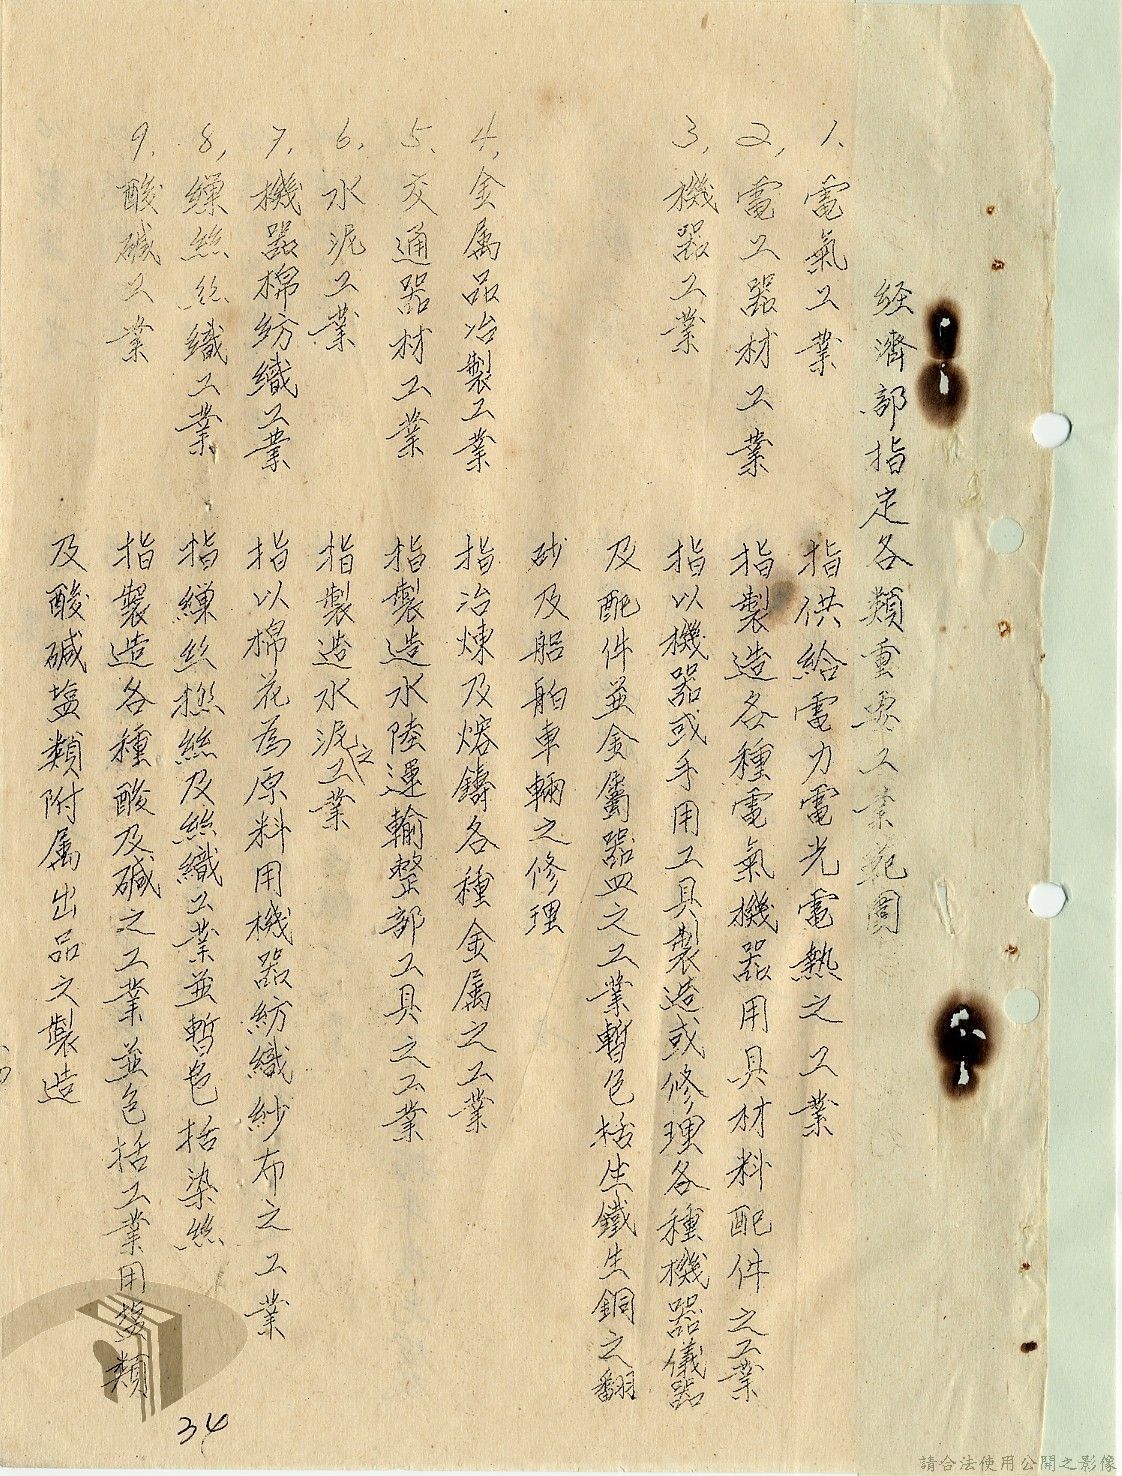 経濟部指定各類重要工業範圍
1. 電氣工業 指供給電力電光電熱之工業
2. 電工器材工業 指製造各種電氣機器用具材料配件之工業
3. 機器工業 指以機器或手用工具製造或修理各種機器儀器
及配件並金屬器皿之工業暫包括生鐵生銅之翻
砂及船舶車輛之修理
4. 金属品冶製工業 指冶煉及熔鑄各種金属之工業
5. 交通器材工業 指製造水陸運輸整部工具之工業
6. 水泥工業 指製造水泥之工業
7. 機器棉紡織工業 指以棉花為原料用機器紡織紗布之工業
8. 繅絲絲織工業 指繅絲撚絲及絲織工業並暫包括染絲
9. 酸碱工業 指製造各種酸及碱之工業並包括工業用塩類
及酸碱塩類附属出品之製造
34
請合法使用公開之影像